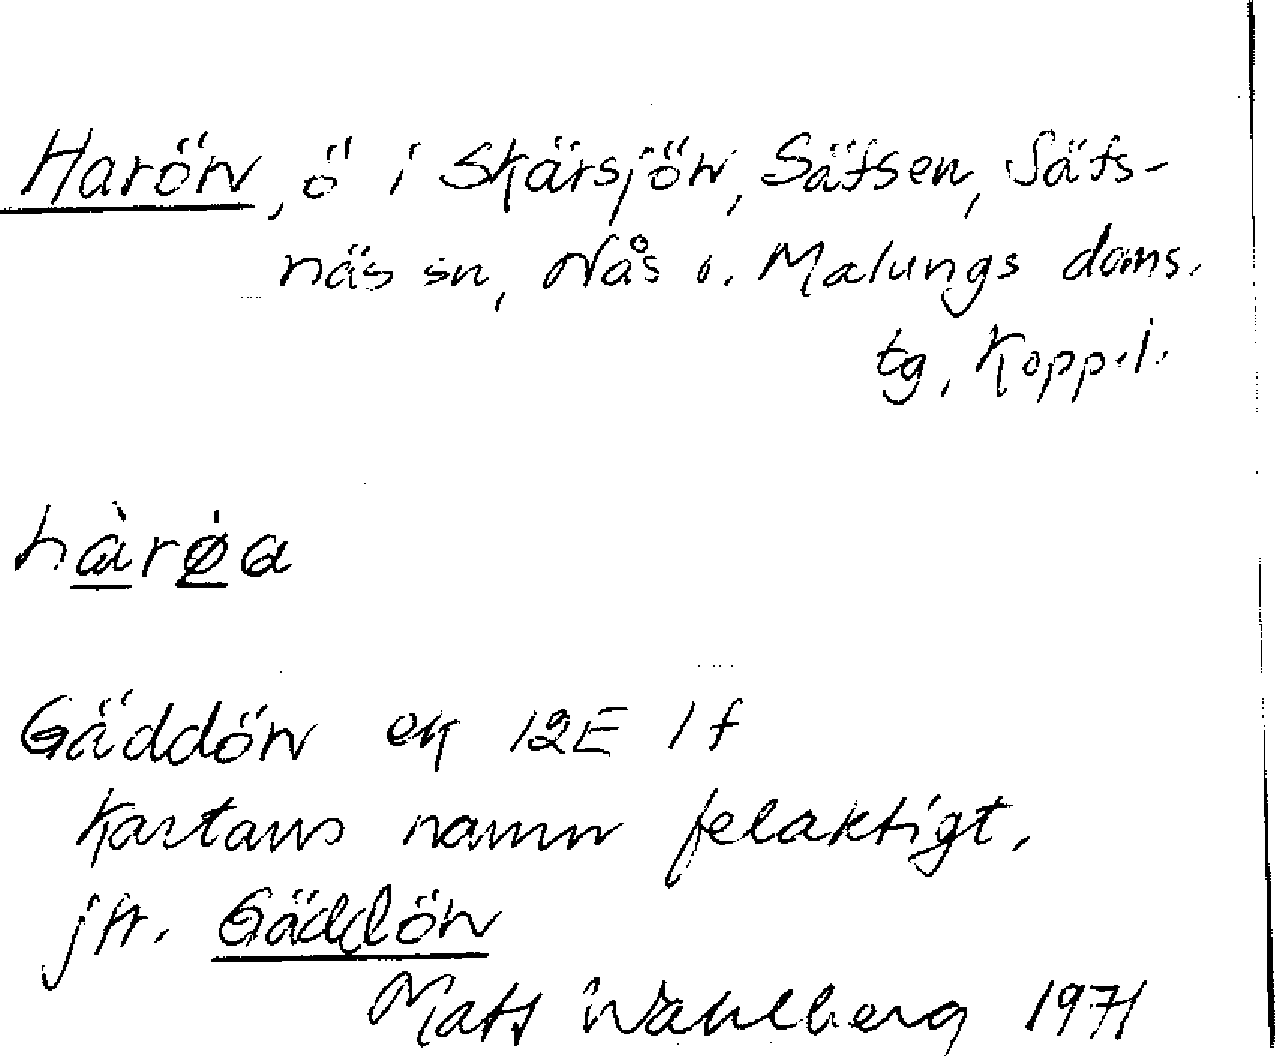 Harön, ö i Skärsjön, Säfsen, Säfs-
näs sn, Nås o. Malungs doms.
tg, Kopp.l.
hàrø̀a
Gäddön ek 12E 1f
Kartans namn felaktigt.
jfr. Gäddön
Mats Wahlberg 1971